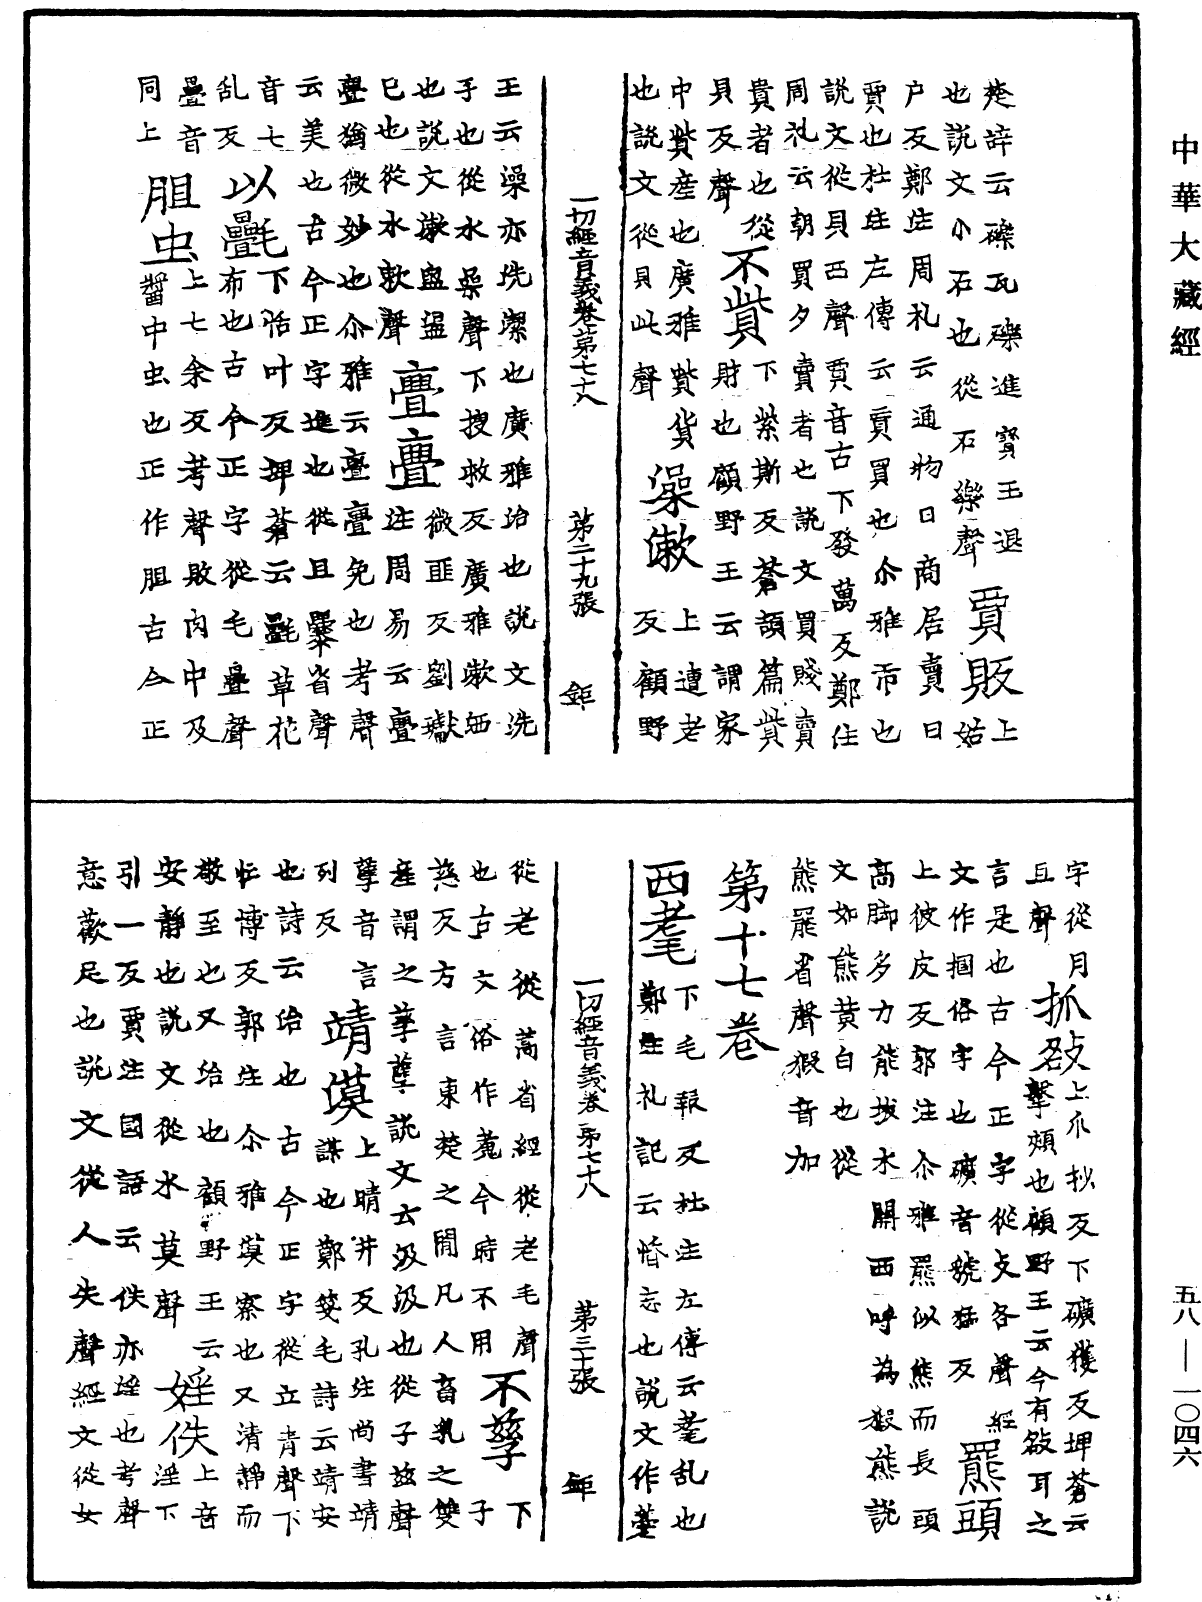 中華大藏經
楚辭云礫瓦礫進寶玉退
也說文小石也從石樂聲
賈販
上
姑
户反鄭注周礼云通物曰商居賣曰
賈也杜注左傳云賈買也尒雅市也
說文從貝襾聲賈音古下發萬反鄭住
周礼云朝買夕賣者也說文買賤賣
貴者也從
貝反聲
不貲
下紫斯反蒼頡篇貲
財也顧野王云謂家
中貲産也廣雅貲貨
也說文從貝此聲
澡漱
上遭老
反顧野
一切經音義卷第七十八
第二十九張
鉅
王云澡亦洗潔也廣雅治也說文洗
手也從水喿聲下搜救反廣雅漱洒
也說文漱盥盪
巳也從水欶聲
亹亹
微匪反劉瓛
注周易云亹
亹猶微妙也尒雅云亹亹免也考聲
云美也古今正字進也從且釁省聲
音七
乱反
以㲲
下恬叶反埤蒼云㲲草花
布也古今正字從毛疊聲
疊音
同上
胆虫
上七余反考聲敗肉中及
醬中虫也正作胆古今正
字從月
且聲
抓㪾
上爪抄反下礦獲反埤蒼云
擊頰也顧野王云今有㪾耳之
言是也古今正字從攴各聲經
文作摑俗字也礦音虢猛反
羆頭
上彼皮反郭注尒雅羆似熊而長頭
高脚多力能拔木關西呼為猳熊說
文如熊黃白也從
熊罷省聲猳音加
第十七卷
西耄
下毛報反杜注左傳云耄乱也
鄭注礼記云惛忘也說文作薹
一切經音義卷第七十八
第三十張
鉅
從老從蒿省經從老毛聲
也古文俗作薧今時不用
不孳
下
子
慈反方言東楚之閒凡人畜乳之雙
産謂之孳孽說文云汲汲也從子兹聲
孽音言
列反
靖漠
上晴井反孔注尚書靖
謀也鄭箋毛詩云靖安
也詩云治也古今正字從立青聲下
忙博反郭注尒雅漠察也又清靜而
敬至也又治也顧野王云
安靜也說文從水莫聲
婬佚
上音
淫下
引一反賈注國語云佚亦婬也考聲
意歡足也說文從人失聲經文從女
五八—一〇四六